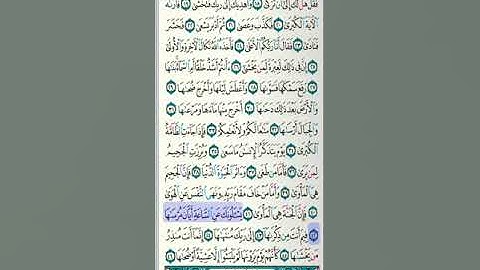 فَقُلْ هَل لَّكَ إِلَىٰٓ أَن تَزَكَّىٰ ١٨ وَأَهْدِيَكَ إِلَىٰ رَبِّكَ فَتَخْشَىٰ ١٩ فَأَرَىٰهُ
ٱلْـَٔايَةَ ٱلْكُبْرَىٰ ٢٠ فَكَذَّبَ وَعَصَىٰ ٢١ ثُمَّ أَدْبَرَ يَسْعَىٰ ٢٢ فَحَشَرَ
فَنَادَىٰ ٢٣ فَقَالَ أَنَا۠ رَبُّكُمُ ٱلْأَعْلَىٰ ٢٤ فَأَخَذَهُ ٱللَّهُ نَكَالَ ٱلْـَٔاخِرَةِ وَٱلْأُولَىٰٓ
٢٥ إِنَّ فِى ذَٰلِكَ لَعِبْرَةً لِّمَن يَخْشَىٰٓ ٢٦ ءَأَنتُمْ أَشَدُّ خَلْقًا أَمِ ٱلسَّمَآءُ بَنَىٰهَا
٢٧ رَفَعَ سَمْكَهَا فَسَوَّىٰهَا ٢٨ وَأَغْطَشَ لَيْلَهَا وَأَخْرَجَ ضُحَىٰهَا ٢٩
وَٱلْأَرْضَ بَعْدَ ذَٰلِكَ دَحَىٰهَآ ٣٠ أَخْرَجَ مِنْهَا مَآءَهَا وَمَرْعَىٰهَا ٣١
وَٱلْجِبَالَ أَرْسَىٰهَا ٣٢ مَتَٰعًا لَّكُمْ وَلِأَنْعَٰمِكُمْ ٣٣ فَإِذَا جَآءَتِ ٱلطَّآمَّةُ
ٱلْكُبْرَىٰ ٣٤ يَوْمَ يَتَذَكَّرُ ٱلْإِنسَٰنُ مَا سَعَىٰ ٣٥ وَبُرِّزَتِ ٱلْجَحِيمُ
لِمَن يَرَىٰ ٣٦ فَأَمَّا مَن طَغَىٰ ٣٧ وَءَاثَرَ ٱلْحَيَوٰةَ ٱلدُّنْيَا ٣٨ فَإِنَّ ٱلْجَحِيمَ
هِىَ ٱلْمَأْوَىٰ ٣٩ وَأَمَّا مَنْ خَافَ مَقَامَ رَبِّهِۦ وَنَهَى ٱلنَّفْسَ عَنِ ٱلْهَوَىٰ
٤٠ فَإِنَّ ٱلْجَنَّةَ هِىَ ٱلْمَأْوَىٰ ٤١ يَسْـَٔلُونَكَ عَنِ ٱلسَّاعَةِ أَيَّانَ مُرْسَىٰهَا
٤٢ فِيمَ أَنتَ مِن ذِكْرَىٰهَآ ٤٣ إِلَىٰ رَبِّكَ مُنتَهَىٰهَآ ٤٤ إِنَّمَآ أَنتَ مُنذِرُ
مَن يَخْشَىٰهَا ٤٥ كَأَنَّهُمْ يَوْمَ يَرَوْنَهَا لَمْ يَلْبَثُوٓا۟ إِلَّا عَشِيَّةً أَوْ ضُحَىٰهَا ٤٦